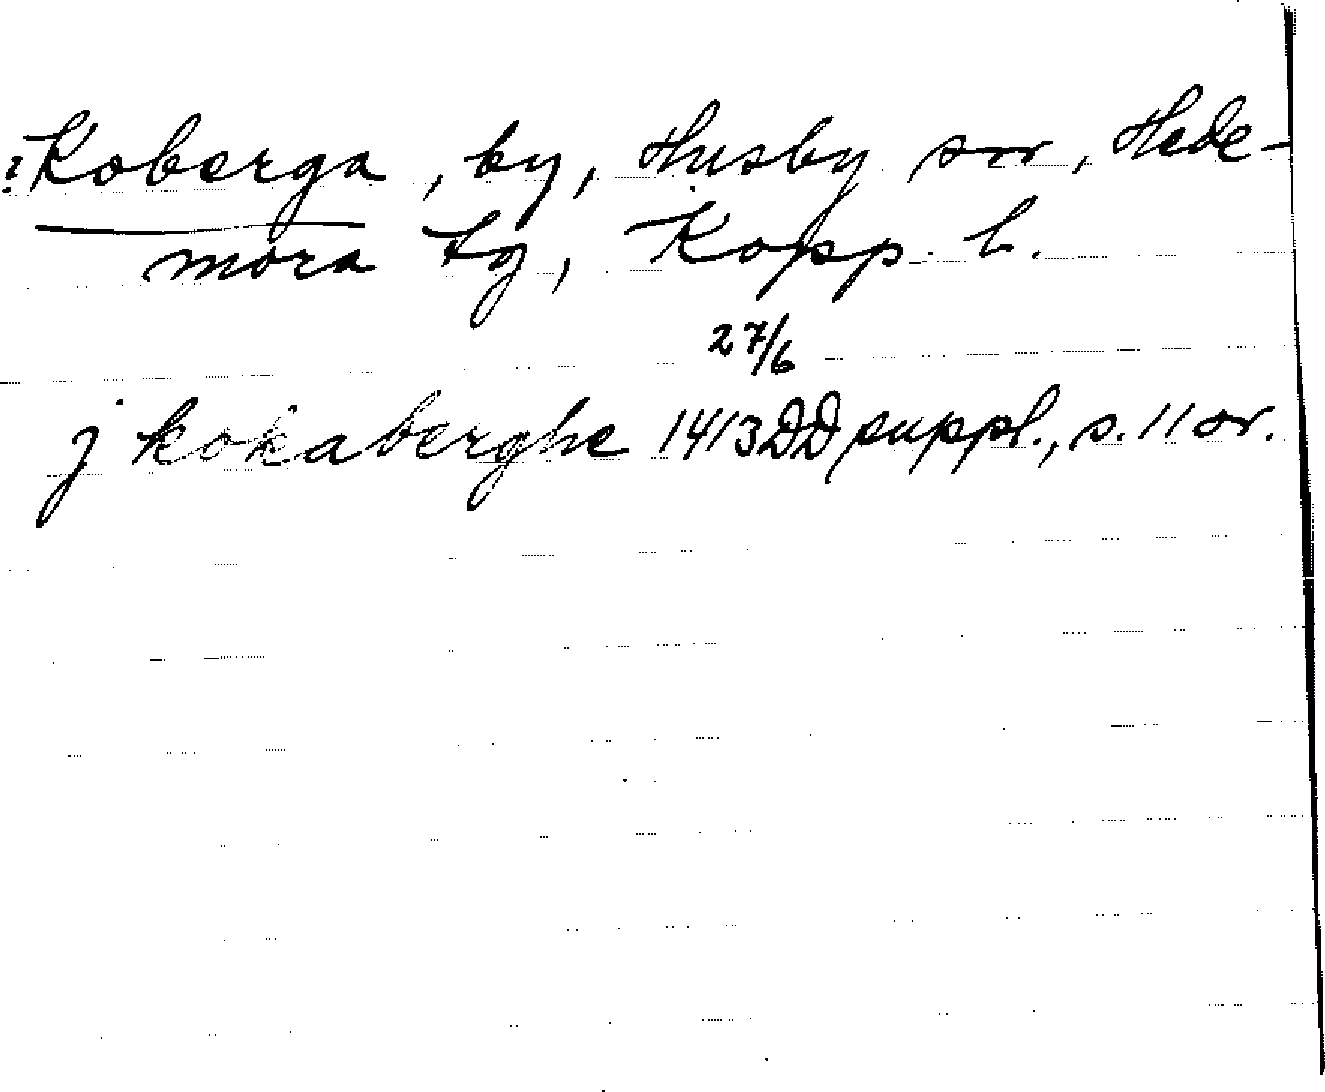 ?Koberga, by, Husby sn, Hede-
mora tg, Kopp. l.
27/6
j kokaberghe 1413 DD suppl., s. 11 or.